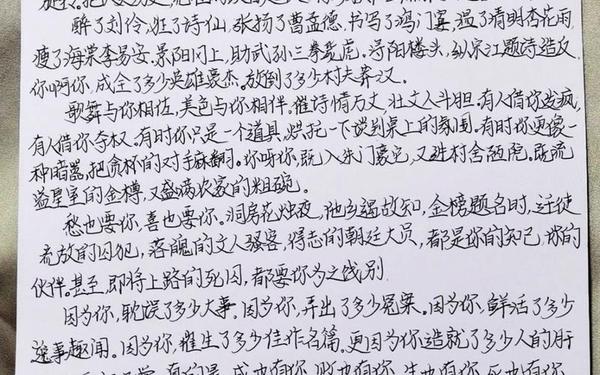 醉了刘伶,狂了诗仙,张扬了曹孟德,书写了鸿门宴,湿了清明杏花雨,
瘦了海棠李易安。景阳冈上,助武松三拳毙虎。浔阳楼头,纵宋江题诗造反。
你啊你,成全了多少英雄豪杰。放倒了多少村夫莽汉。
歌舞与你相佐,美色与你相伴。催诗情万丈,壮文人斗胆。有人借你发疯,
有人借你夺权。有时你只是一个道具,烘托一下谈判桌上的氛围。有时你更像一
种暗器,把贪杯的对手麻翻。你呀你,既入朱门豪宅,又进村舍陋院。既流
溢皇室的金樽,又盛满农家的粗碗。
愁也要你,喜也要你。洞房花烛夜,他乡遇故知,金榜题名时,迁徙
流放的囚犯,落魄的文人骚客,得志的朝廷大员,都是你的知己,你的
伙伴。甚至,即将上路的死囚,都要你为之饯别。
因为你,耽误了多少大事。因为你,弄出了多少冤案。因为你,鲜活了多少
逸事趣闻。因为你,催生了多少佳作名篇。更因为你造就了多少人的肝
成也有你,败也有你,生也有你,死也有你